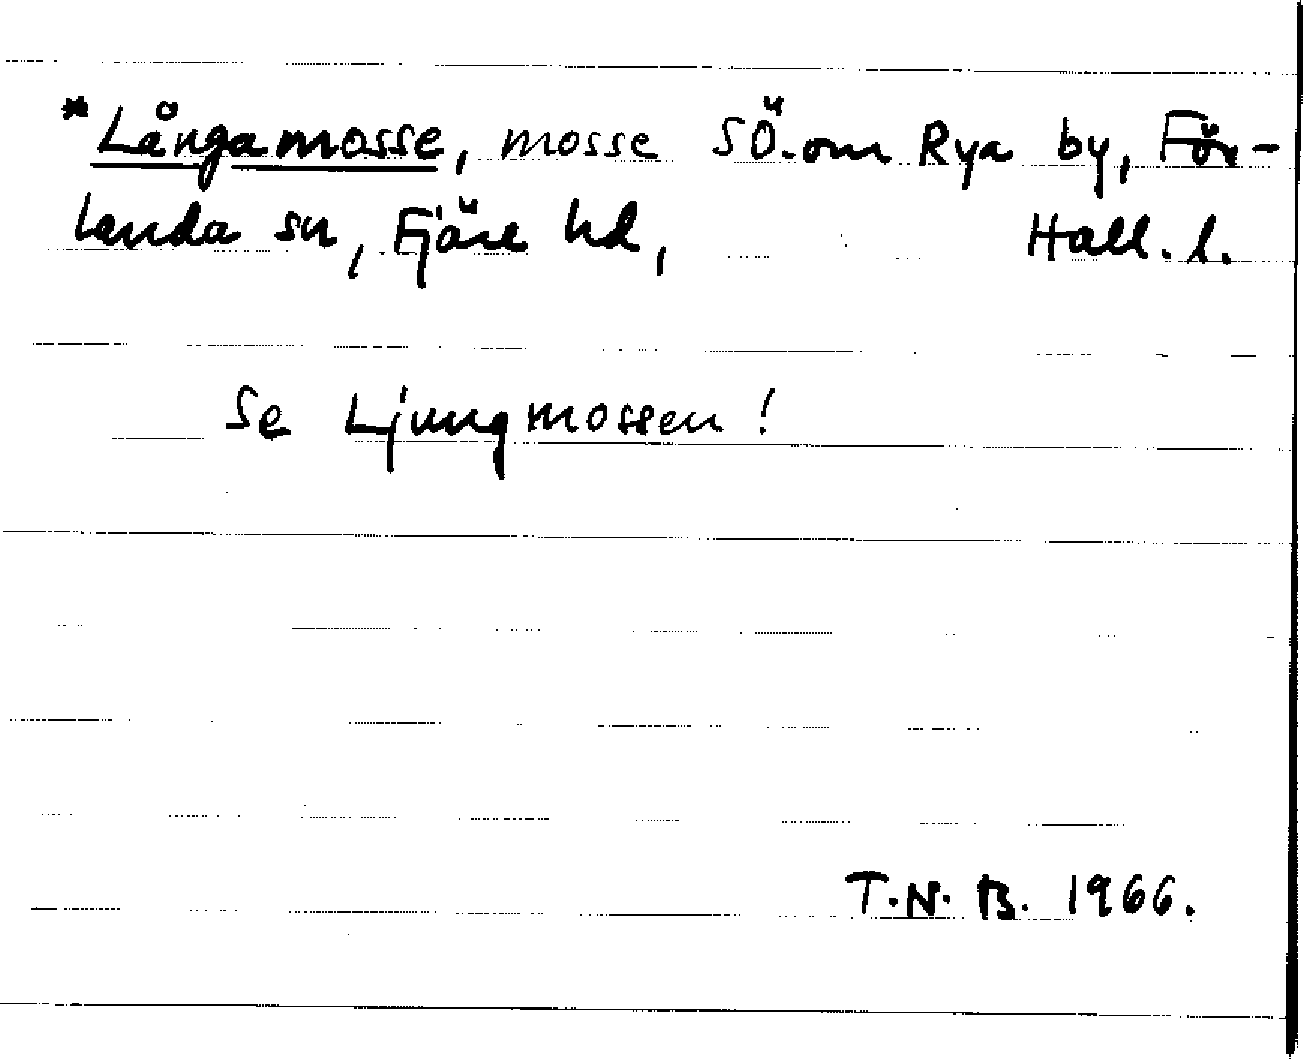 *Långamosse, mosse SÖ.om Rya by, För-
landa sn, Fjäre hd, Hall. l.
Se Ljungmossen!
T.N.B. 1966.